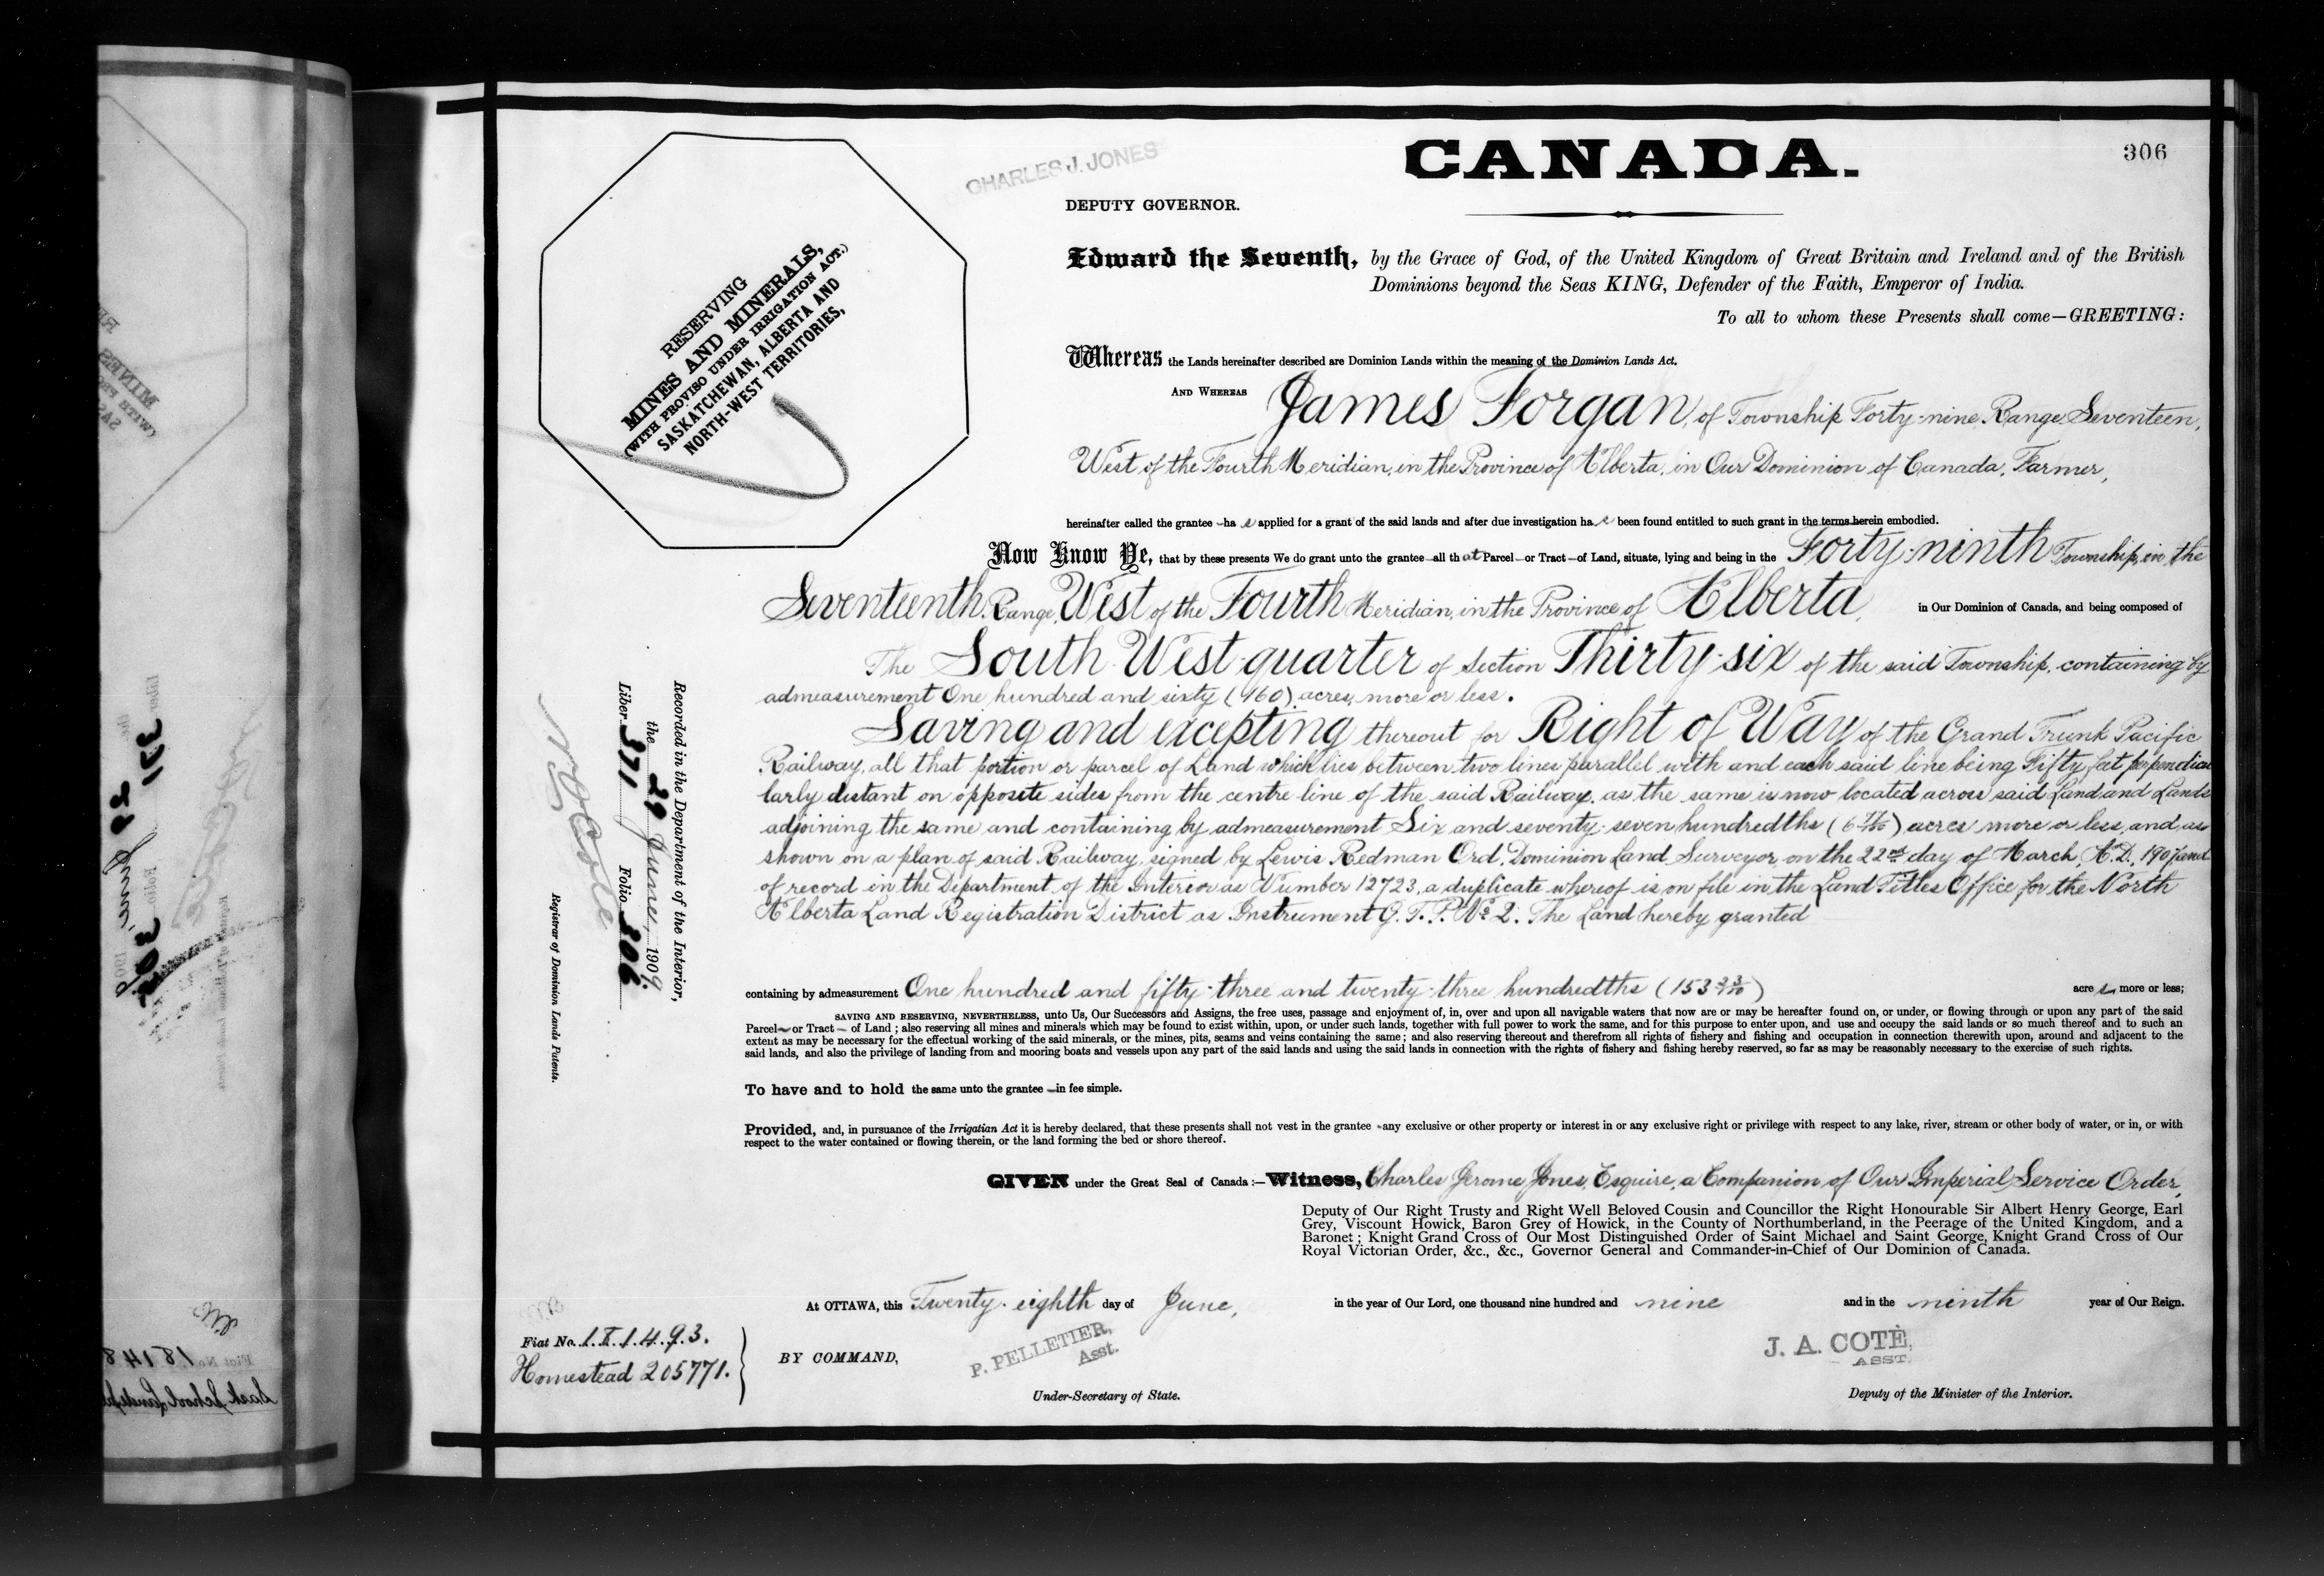 306
CHARLES J. JONES
CANADA.
DEPUTY GOVERNOR.
RESERVING
MINES AND MINERALS,
(WITH PROVISO UNDER IRRIGATION ACT.)
SASKATCHEWAN, ALBERTA AND
NORTH-WEST TERRITORIES,
Edward the Seventh, by the Grace of God, of the United Kingdom of Great Britain and Ireland and of the British
Dominions beyond the Seas KING, Defender of the Faith, Emperor of India.
To all to whom these Presents shall come—GREETING:
Whereas the Lands hereinafter described are Dominion Lands within the meaning of the Dominion Lands Act.
AND WHEREAS James Forgan, of Township Forty-nine, Range Seventeen,
West of the Fourth Meridian, in the Province of Alberta, in Our Dominion of Canada, Farmer,
hereinafter called the grantee—has applied for a grant of the said lands and after due investigation has been found entitled to such grant in the terms herein embodied.
Now Know Ye, that by these presents We do grant unto the grantee—all that Parcel—or Tract—of Land, situate, lying and being in the Forty-ninth Township, in the
Seventeenth Range, West of the Fourth Meridian, in the Province of Alberta, in Our Dominion of Canada, and being composed of
The South West quarter of Section Thirty-six of the said Township, containing by
admeasurement One hundred and sixty (160) acres, more or less.
Saving and excepting thereout for Right of Way of the Grand Trunk Pacific
Railway, all that portion or parcel of Land which lies between two lines parallel with and each said line being Fifty feet perpendicu
larly distant on opposite sides from the centre line of the said Railway, as the same is now located across said Land and Lands
adjoining the same and containing by admeasurement Six and seventy-seven hundredths (6 77/100) acres more or less, and as
shown on a plan of said Railway, signed by Lewis Redman Ord, Dominion Land Surveyor on the 22nd day of March, A.D. 1907, and
of record in the Department of the Interior as Number 12723, a duplicate whereof is on file in the Land Titles Office for the North
Alberta Land Registration District as Instrument G.T.P. No 2. The Land hereby granted
containing by admeasurement One hundred and fifty-three and twenty-three hundredths (153 23/100) acres more or less;
SAVING AND RESERVING, NEVERTHELESS, unto Us, Our Successors and Assigns, the free uses, passage and enjoyment of, in, over and upon all navigable waters that now are or may be hereafter found on, or under, or flowing through or upon any part of the said
Parcel—or Tract—of Land; also reserving all mines and minerals which may be found to exist within, upon, or under such lands, together with full power to work the same, and for this purpose to enter upon, and use and occupy the said lands or so much thereof and to such an
extent as may be necessary for the effectual working of the said minerals, or the mines, pits, seams and veins containing the same; and also reserving thereout and therefrom all rights of fishery and fishing and occupation in connection therewith upon, around and adjacent to the
said lands, and also the privilege of landing from and mooring boats and vessels upon any part of the said lands and using the said lands in connection with the rights of fishery and fishing hereby reserved, so far as may be reasonably necessary to the exercise of such rights.
To have and to hold the same unto the grantee—in fee simple.
Provided, and, in pursuance of the Irrigation Act it is hereby declared, that these presents shall not vest in the grantee—any exclusive or other property or interest in or any exclusive right or privilege with respect to any lake, river, stream or other body of water, or in, or with
respect to the water contained or flowing therein, or the land forming the bed or shore thereof.
GIVEN under the Great Seal of Canada:—Witness, Charles Jerome Jones, Esquire, a Companion of Our Imperial Service Order,
Deputy of Our Right Trusty and Right Well Beloved Cousin and Councillor the Right Honourable Sir Albert Henry George, Earl
Grey, Viscount Howick, Baron Grey of Howick, in the County of Northumberland, in the Peerage of the United Kingdom, and a
Baronet; Knight Grand Cross of Our Most Distinguished Order of Saint Michael and Saint George, Knight Grand Cross of Our
Royal Victorian Order, &c., &c., Governor General and Commander-in-Chief of Our Dominion of Canada.
At OTTAWA, this Twenty-eighth day of June, in the year of Our Lord, one thousand nine hundred and nine and in the ninth year of Our Reign.
BY COMMAND,
P. PELLETIER,
Asst.
Under-Secretary of State.
J. A. COTÉ,
ASST.
Deputy of the Minister of the Interior.
Fiat No. 181493.
Homestead 205771.
Recorded in the Department of the Interior,
the 29 June, 1909.
Liber 371 Folio 306
Registrar of Dominion Lands Patents.